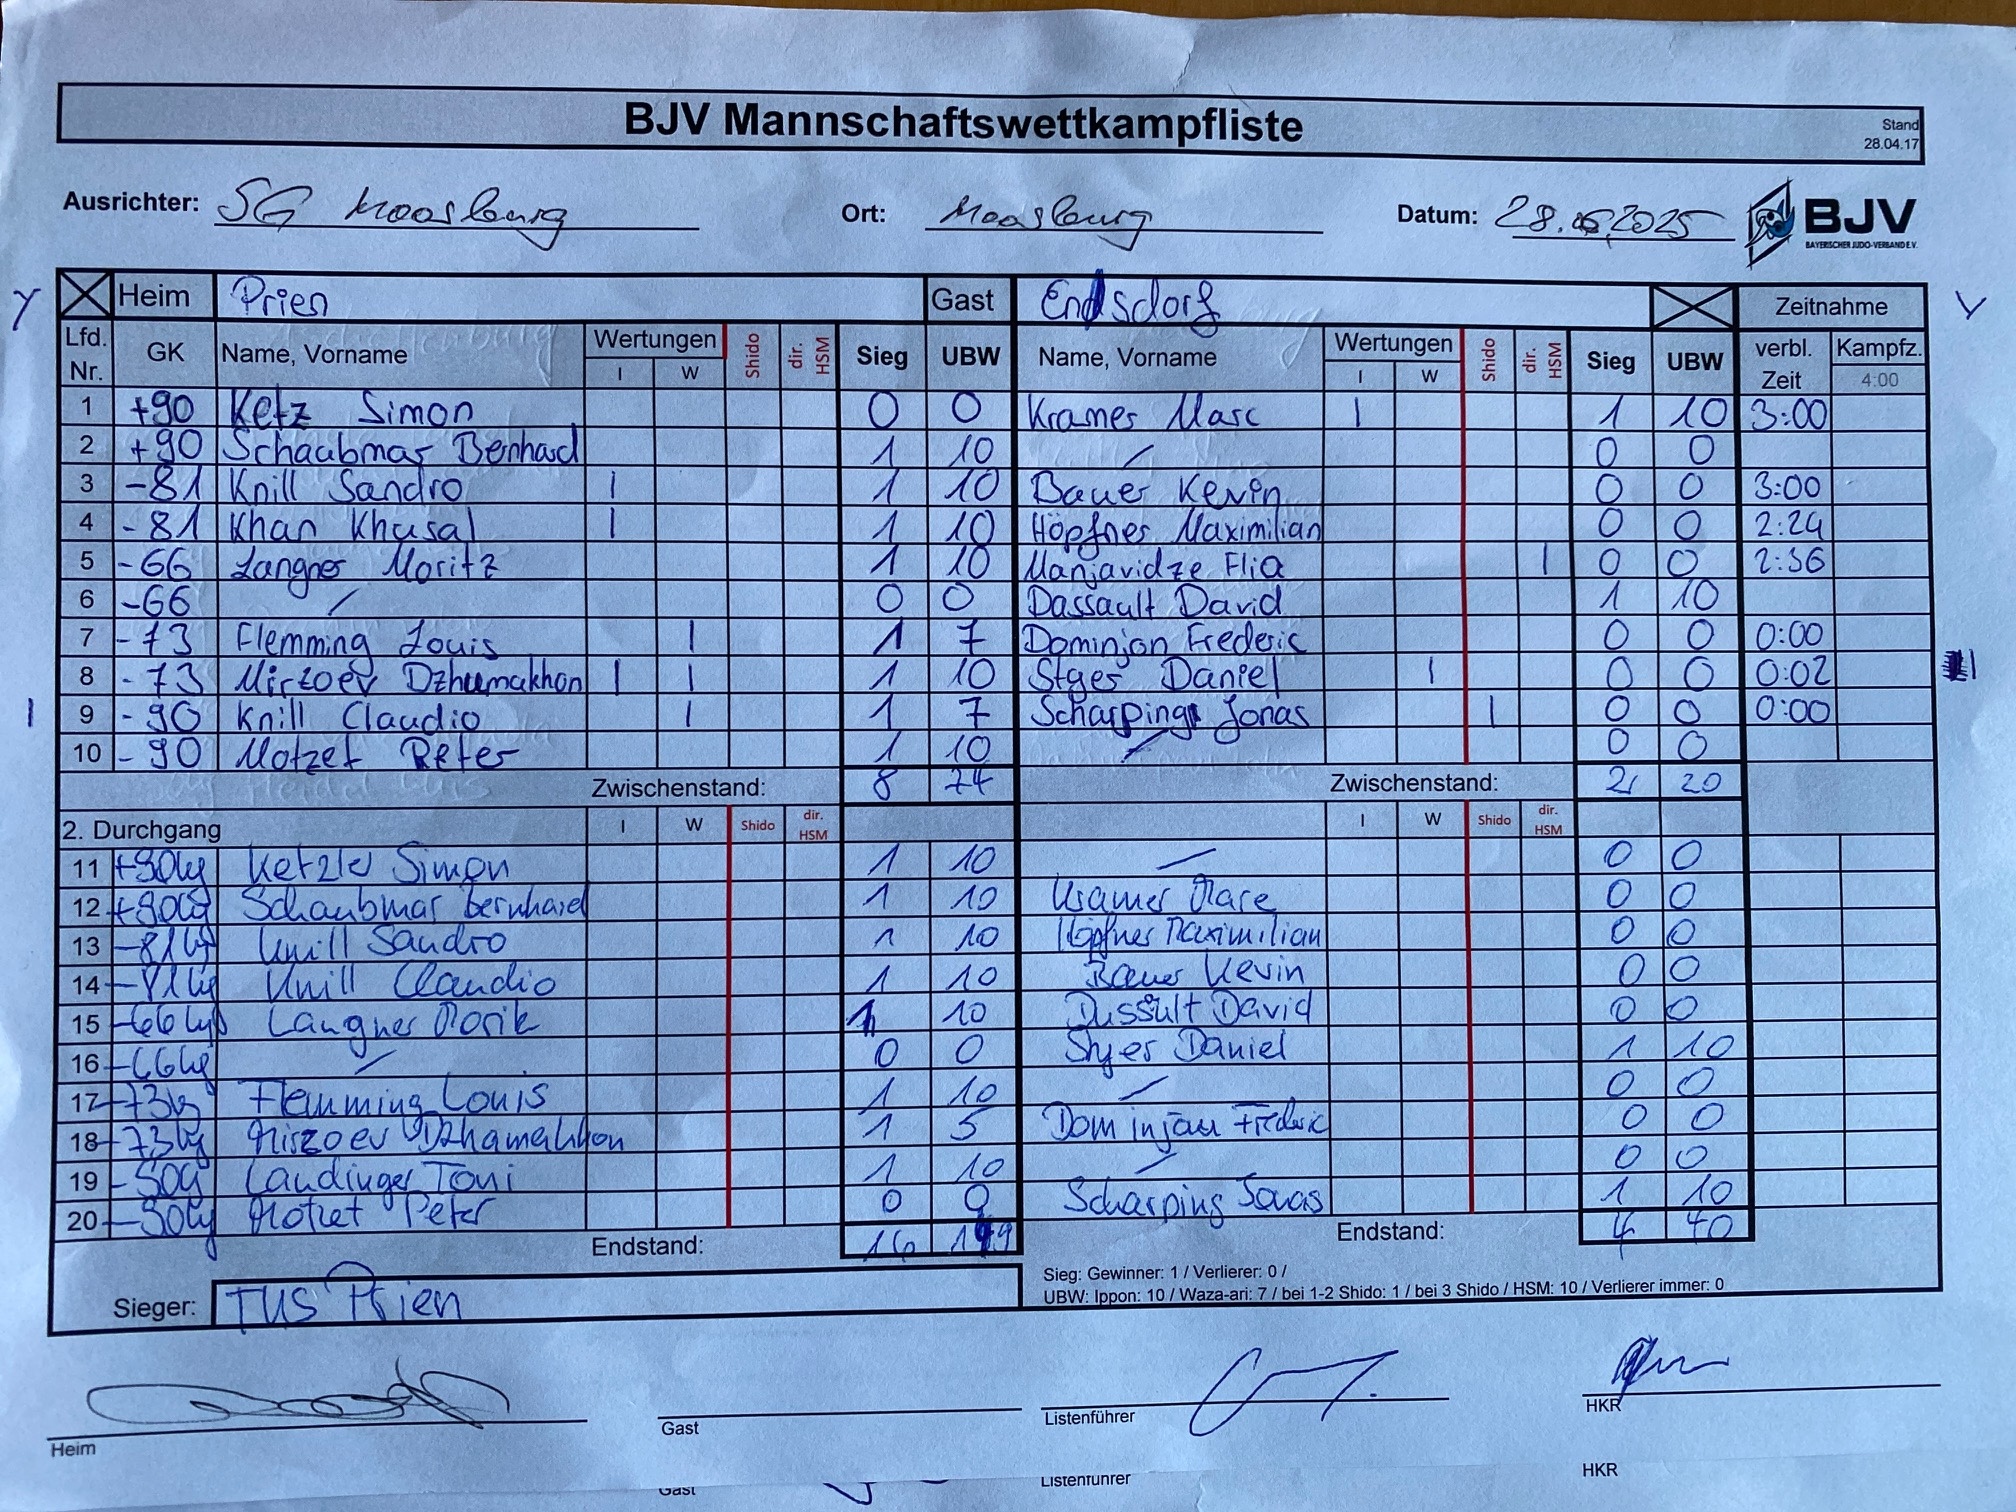 BJV Mannschaftswettkampfliste
Stand
28.04.17
Ausrichter: SG Moosburg Ort: Moosburg Datum: 28.06.2025
BJV
BAYERISCHER JUDO-VERBAND E.V.
Heim Prien Gast Endsdorf Zeitnahme
Lfd. Nr. GK Name, Vorname Wertungen I W Shido dir. HSM Sieg UBW Name, Vorname Wertungen I W Shido dir. HSM Sieg UBW verbl. Zeit Kampfz. 4:00
1 +90 Ketz Simon 0 0 Kramer Marc I 1 10 3:00
2 +90 Schaubmar Bernhard 1 10 / 0 0
3 -81 Knill Sandro I 1 10 Bauer Kevin 0 0 3:00
4 -81 Khan Khusal I 1 10 Höpfner Maximilian 0 0 2:24
5 -66 Langner Moritz 1 10 Manjavidze Elia I 0 0 2:36
6 -66 / 0 0 Dassault David 1 10
7 -73 Flemming Louis I 1 7 Dominjon Frederic 0 0 0:00
8 -73 Mirzoev Dzhumakhon I I 1 10 Styer Daniel I 0 0 0:02
9 -90 Knill Claudio I 1 7 Scharping Jonas I 0 0 0:00
10 -90 Motzet Peter 1 10 / 0 0
Zwischenstand: 8 74 Zwischenstand: 2 20
2. Durchgang I W Shido dir. HSM I W Shido dir. HSM
11 +90kg Ketzler Simon 1 10 / 0 0
12 +90kg Schaubmar Bernhard 1 10 Kramer Marc 0 0
13 -81kg Knill Sandro 1 10 Höpfner Maximilian 0 0
14 -81kg Knill Claudio 1 10 Bauer Kevin 0 0
15 -66kg Langner Morik 1 10 Dussult David 0 0
16 -66kg / 0 0 Styer Daniel 1 10
17 -73kg Flemming Louis 1 10 / 0 0
18 -73kg Mirzoev Dzhamakhon 1 5 Dominjau Frederic 0 0
19 -90kg Landinger Toni 1 10 / 0 0
20 -90kg Motzet Peter 0 0 Scharping Jonas 1 10
Endstand: 16 Endstand: 4 40
Sieger: TUS Prien
Sieg: Gewinner: 1 / Verlierer: 0 /
UBW: Ippon: 10 / Waza-ari: 7 / bei 1-2 Shido: 1 / bei 3 Shido / HSM: 10 / Verlierer immer: 0
Heim Gast Listenführer HKR
Gast Listenführer HKR